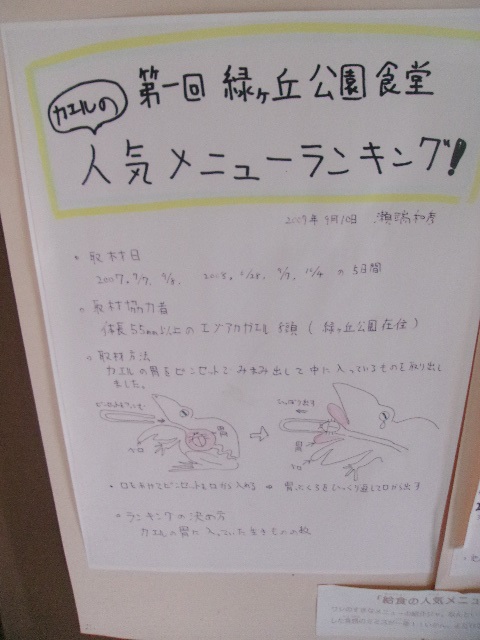 カエルの
第一回 緑ヶ丘公園食堂
人気メニューランキング!
2009年 9月10日
。取材日
2007. 9/7, 9/8, 2008. 6/28, 9/7, 10/4 の5日間
。取材協力者
体長55mm以上のエゾアカガエル 5頭 ( 緑ヶ丘公園在住 )
。取材方法
カエルの胃をピンセットでつまみ出して中に入っているものを取り出し
ました。
ピンセット
ひっぱり出す
胃
ベロ
胃
ベロ
・口をあけてピンセットを口から入れる ⇒ 胃ぶくろをひっくり返して口から出す
。ランキングの決め方
カエルの胃に入っていた生きものの数
「給食の人気メニュ